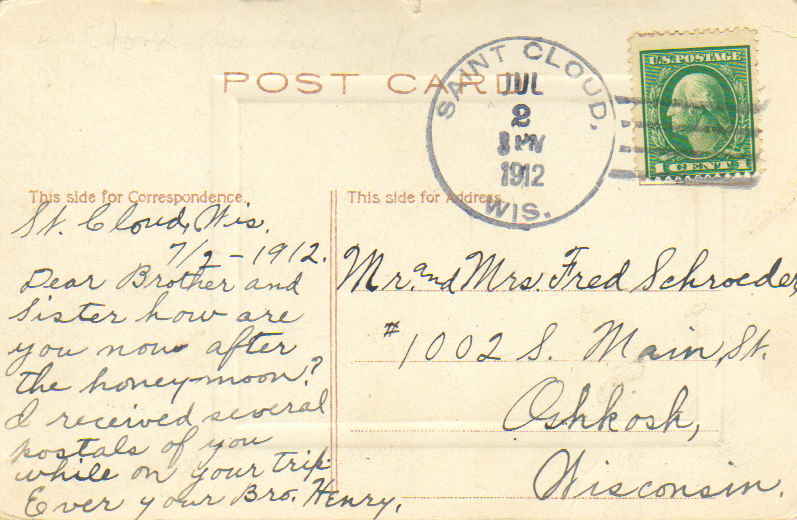 POST CARD
SAINT CLOUD,
JUL
2
1912
WIS.
U.S. POSTAGE
1 CENT 1
This side for Correspondence.
This side for Address.
St. Cloud, Wis.
7/2 - 1912.
Dear Brother and
Sister how are
you now after
the honey-moon?
I received several
postals of you
while on your trip.
Ever your Bro. Henry.
Mr. and Mrs. Fred Schroeder,
#1002 S. Main, St.
Oshkosh,
Wisconsin.